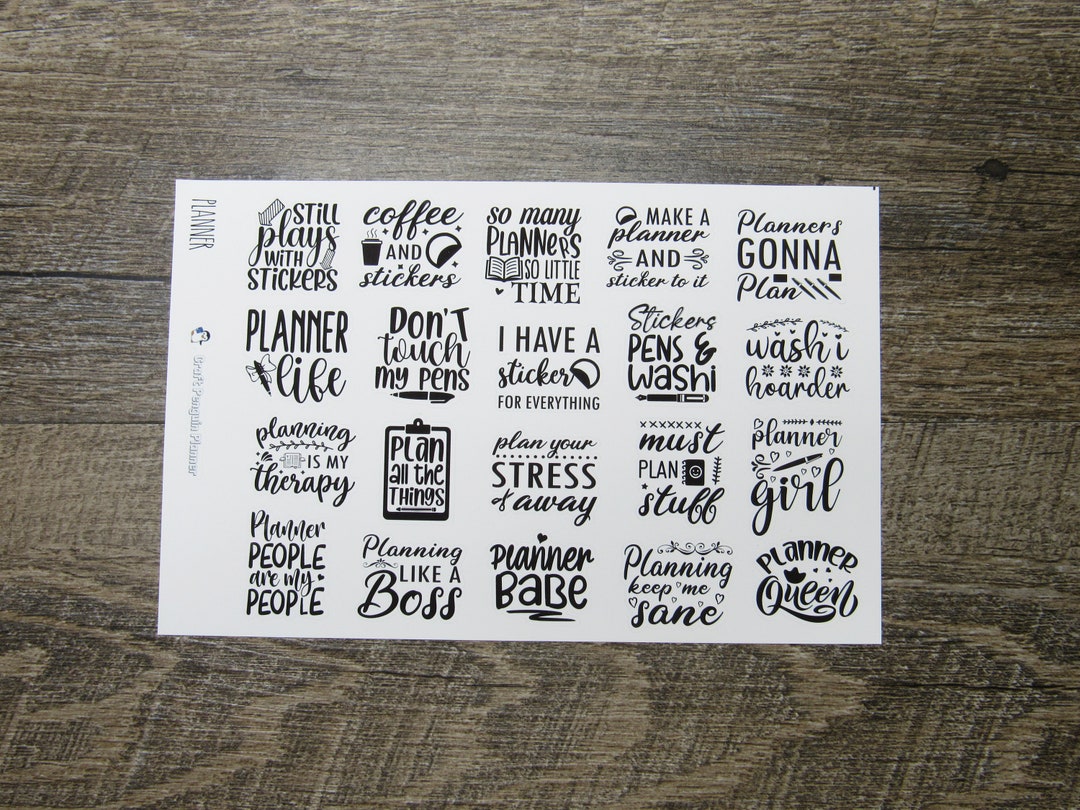 PLANNER
Craft Penguin Planner
STILL
plays
WITH
STICKERS
coffee
AND
stickers
so many
PLANNERS
SO LITTLE
TIME
MAKE A
planner
AND
sticker to it
Planners
GONNA
Plan
PLANNER
life
DON'T
touch
my pens
I HAVE A
sticker
FOR EVERYTHING
Stickers
PENS &
washi
washi
hoarder
planning
IS MY
therapy
Plan
all the
Things
plan your
STRESS
away
must
PLAN
stuff
planner
girl
Planner
PEOPLE
are my
PEOPLE
Planning
LIKE A
Boss
Planner
BABE
Planning
keep me
sane
PLANNER
Queen